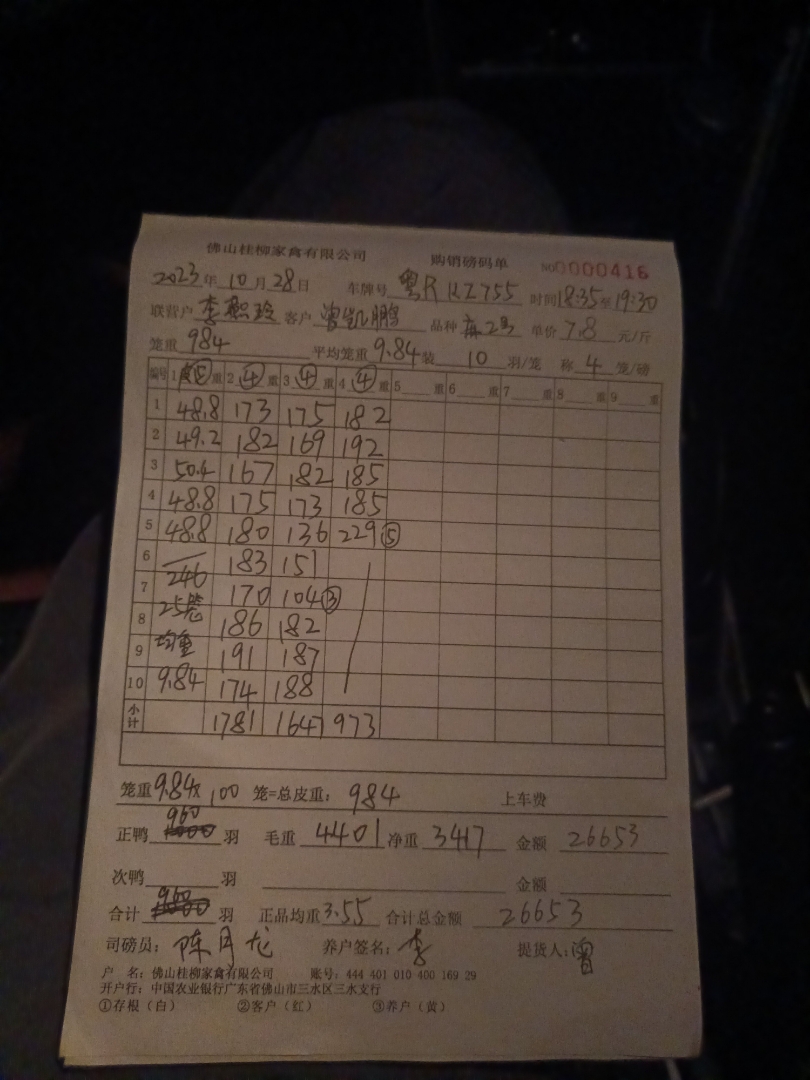 佛山桂柳家禽有限公司 购销磅码单 NO0000416
2023年10月28日 车牌号 粤RKZ755 时间18:35至19:30
联营户 李熙玲 客户 曾凯鹏 品种 麻2号 单价 7.8 元/斤
笼重 984 平均笼重 9.84 装 10 羽/笼 称 4 笼/磅
编号 1 ⑤ 重 2 ④ 重 3 ④ 重 4 ④ 重 5 重 6 重 7 重 8 重 9 重
1 48.8 173 175 182
2 49.2 182 169 192
3 50.4 167 182 185
4 48.8 175 173 185
5 48.8 180 136 229⑤
6 246 183 151
7 25笼 170 104③
8 均重 186 182
9 9.84 191 187
10 174 188
小计 1781 1647 973
笼重 9.84× 100 笼=总皮重: 984 上车费
正鸭 960 羽 毛重 4401 净重 3417 金额 26653
次鸭 羽 金额
合计 960 羽 正品均重 3.55 合计总金额 26653
司磅员: 陈月龙 养户签名: 李 提货人: 曾
户 名: 佛山桂柳家禽有限公司 账号: 444 401 010 400 169 29
开户行: 中国农业银行广东省佛山市三水区三水支行
①存根(白) ②客户(红) ③养户(黄)